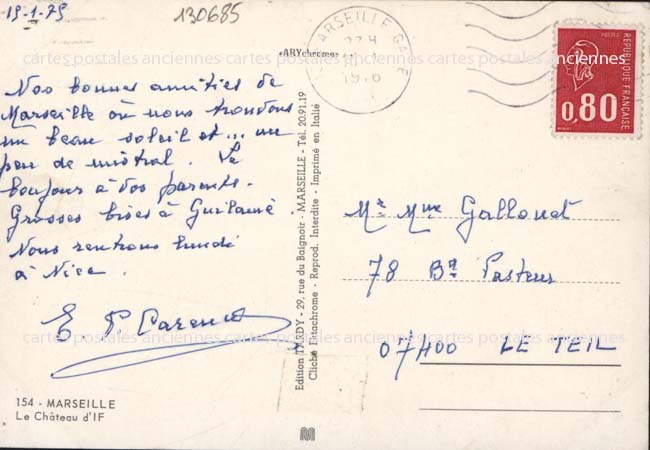 15-1-75
130685
MARSEILLE GARE
1976
POSTES
REPUBLIQUE FRANÇAISE
0,80
cartes postales anciennes cartes postales anciennes cartes postales anciennes
Nos bonnes amitiés de
Marseille où nous trouvons
un beau soleil et... un
peu de mistral. Le
bonjour à vos parents.
Grosses bises à
Nous rentrons lundi
à Nice.
E P.
Edition TARDY - 29, rue du Baignoir - MARSEILLE - Tél. 20.91.19
Cliché Ektachrome - Reprod. Interdite - Imprimé en Italie
Mr Mme Gallonet
78 Bd Pasteur
07400 LE TEIL
cartes postales anciennes cartes postales anciennes cartes postales anciennes
154 - MARSEILLE
Le Château d'IF